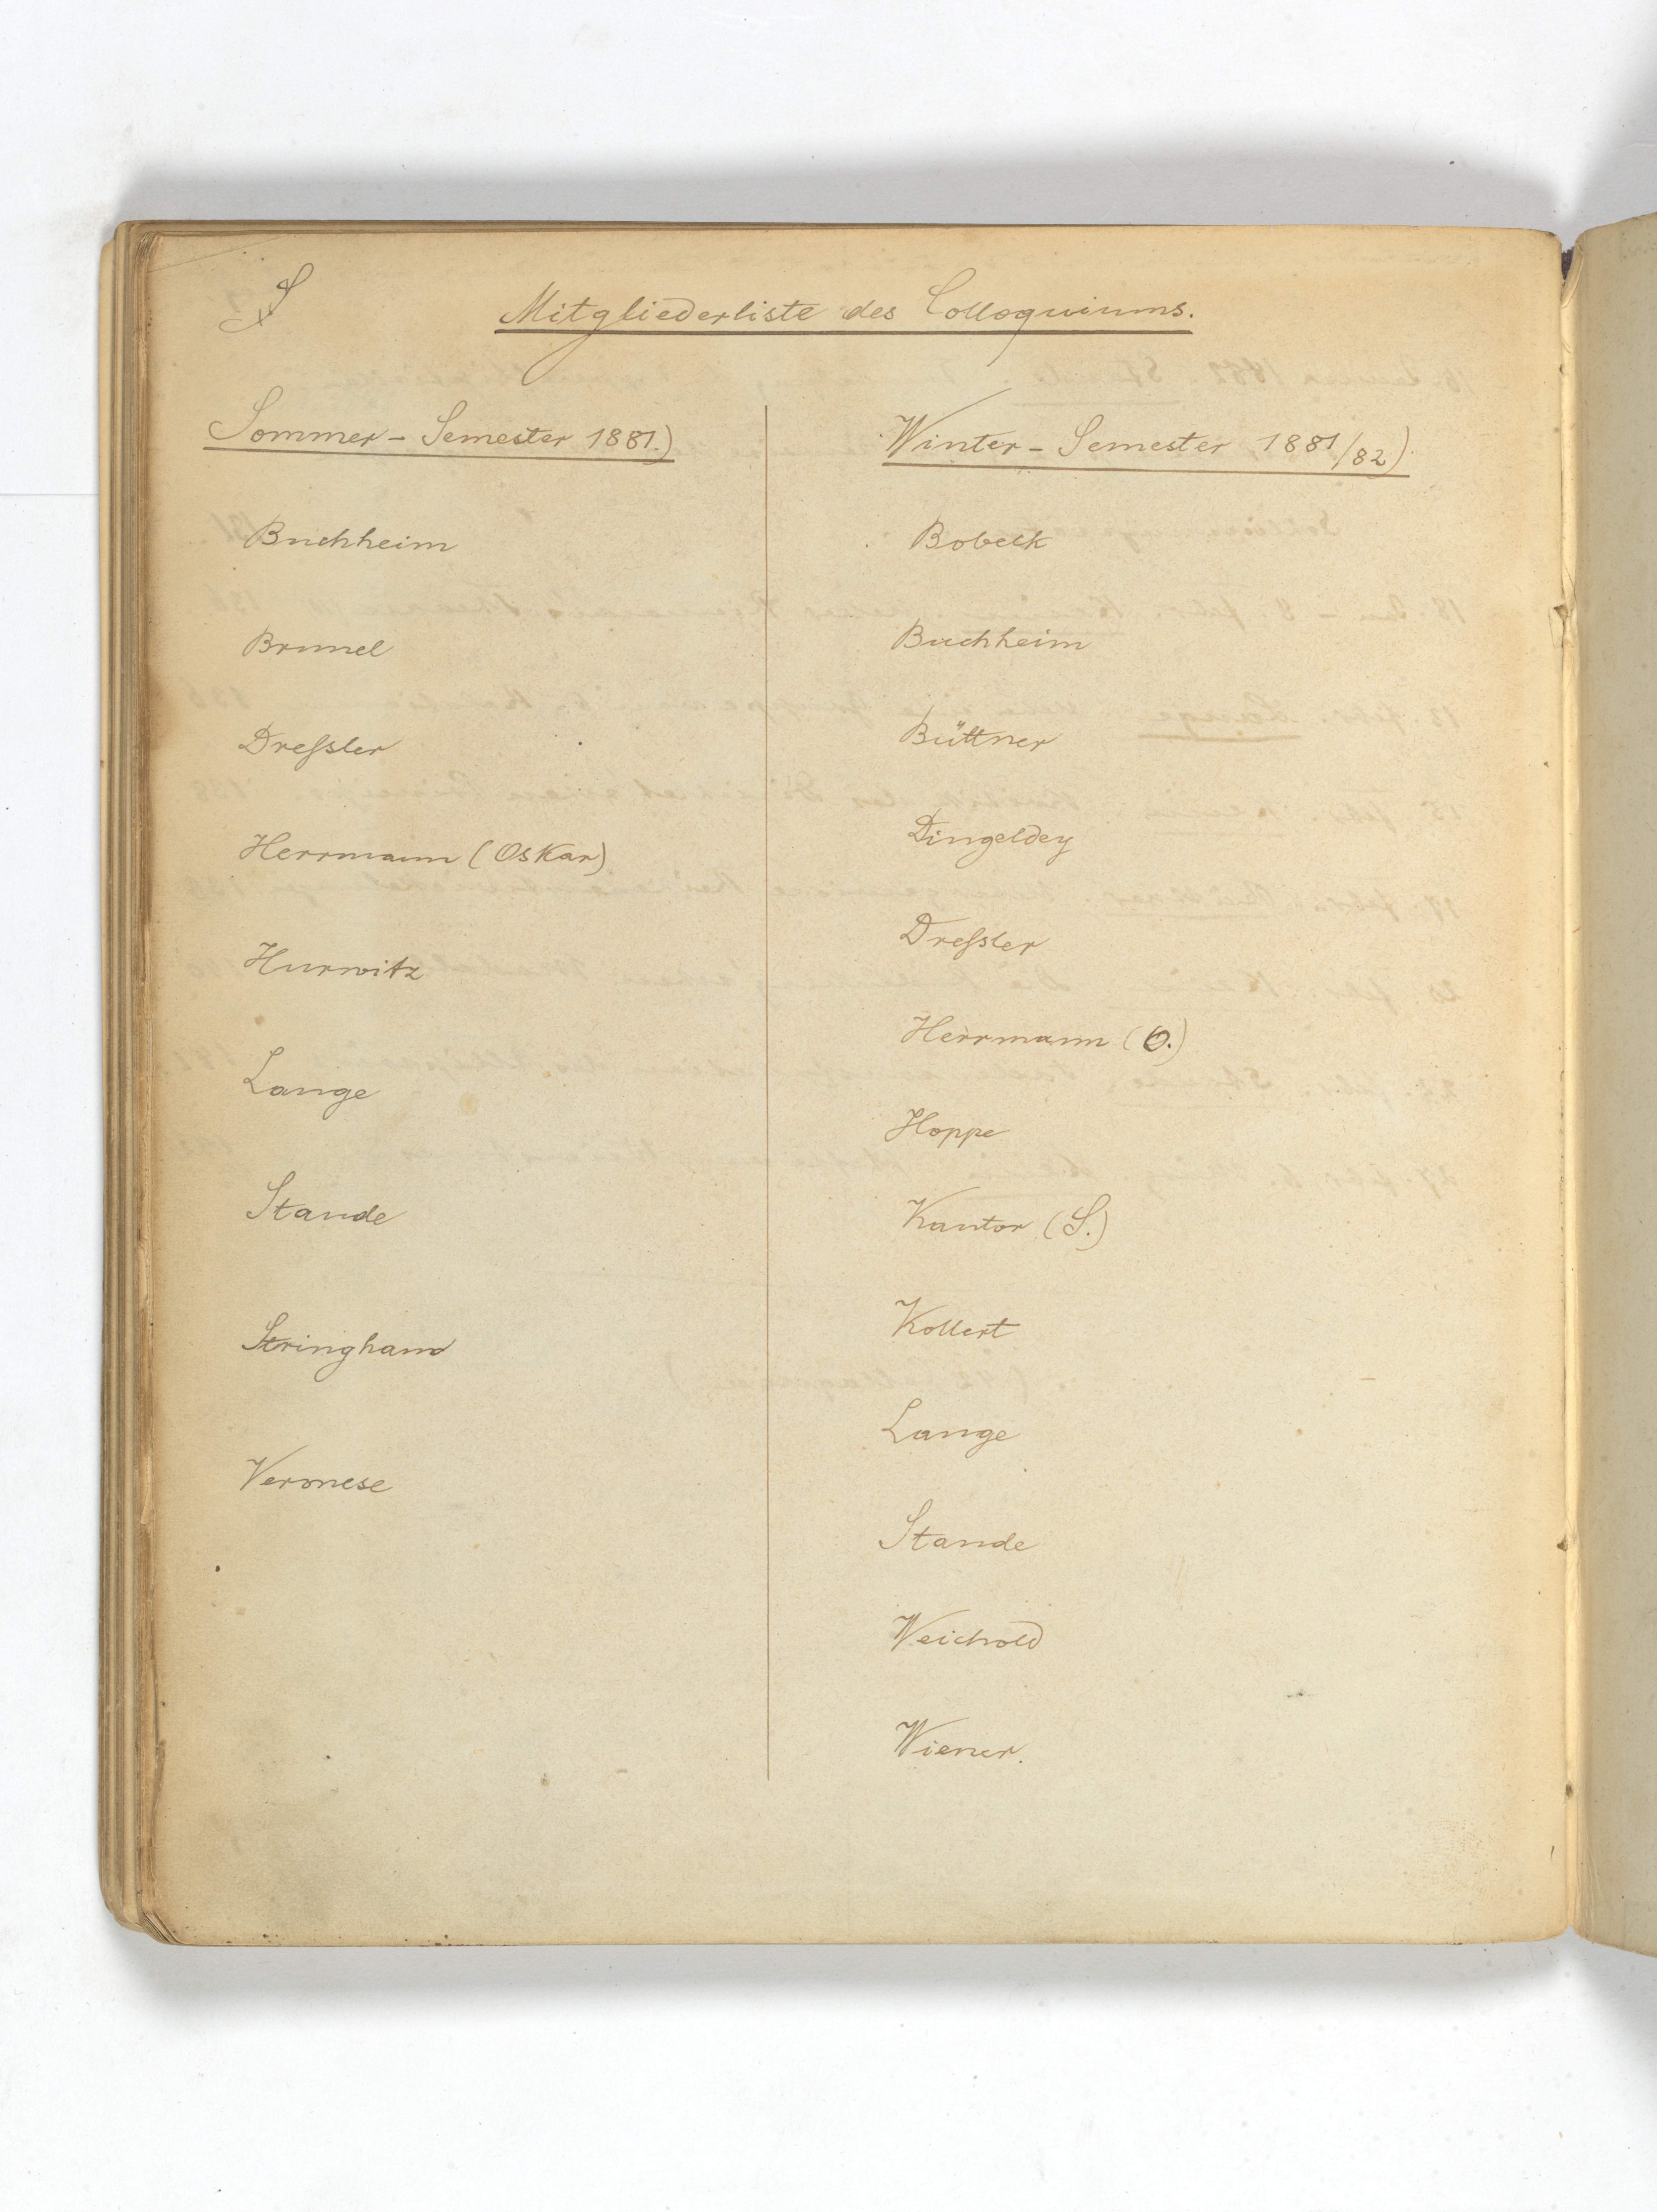 Mitgliederliste des Colloquiums.
Sommer-Semester 1881.)
Buchheim
Brunel
Dreſsler
Herrmann (Oskar)
Hurwitz
Lange
Staude
Stringham
Veronese
Winter-Semester 1881/82)
Bobeck
Buchheim
Büttner
Dingeldey
Dreſsler
Herrmann (O.)
Hoppe
Kantor (S.)
Kollert
Lange
Staude
Weichold
Wiener.